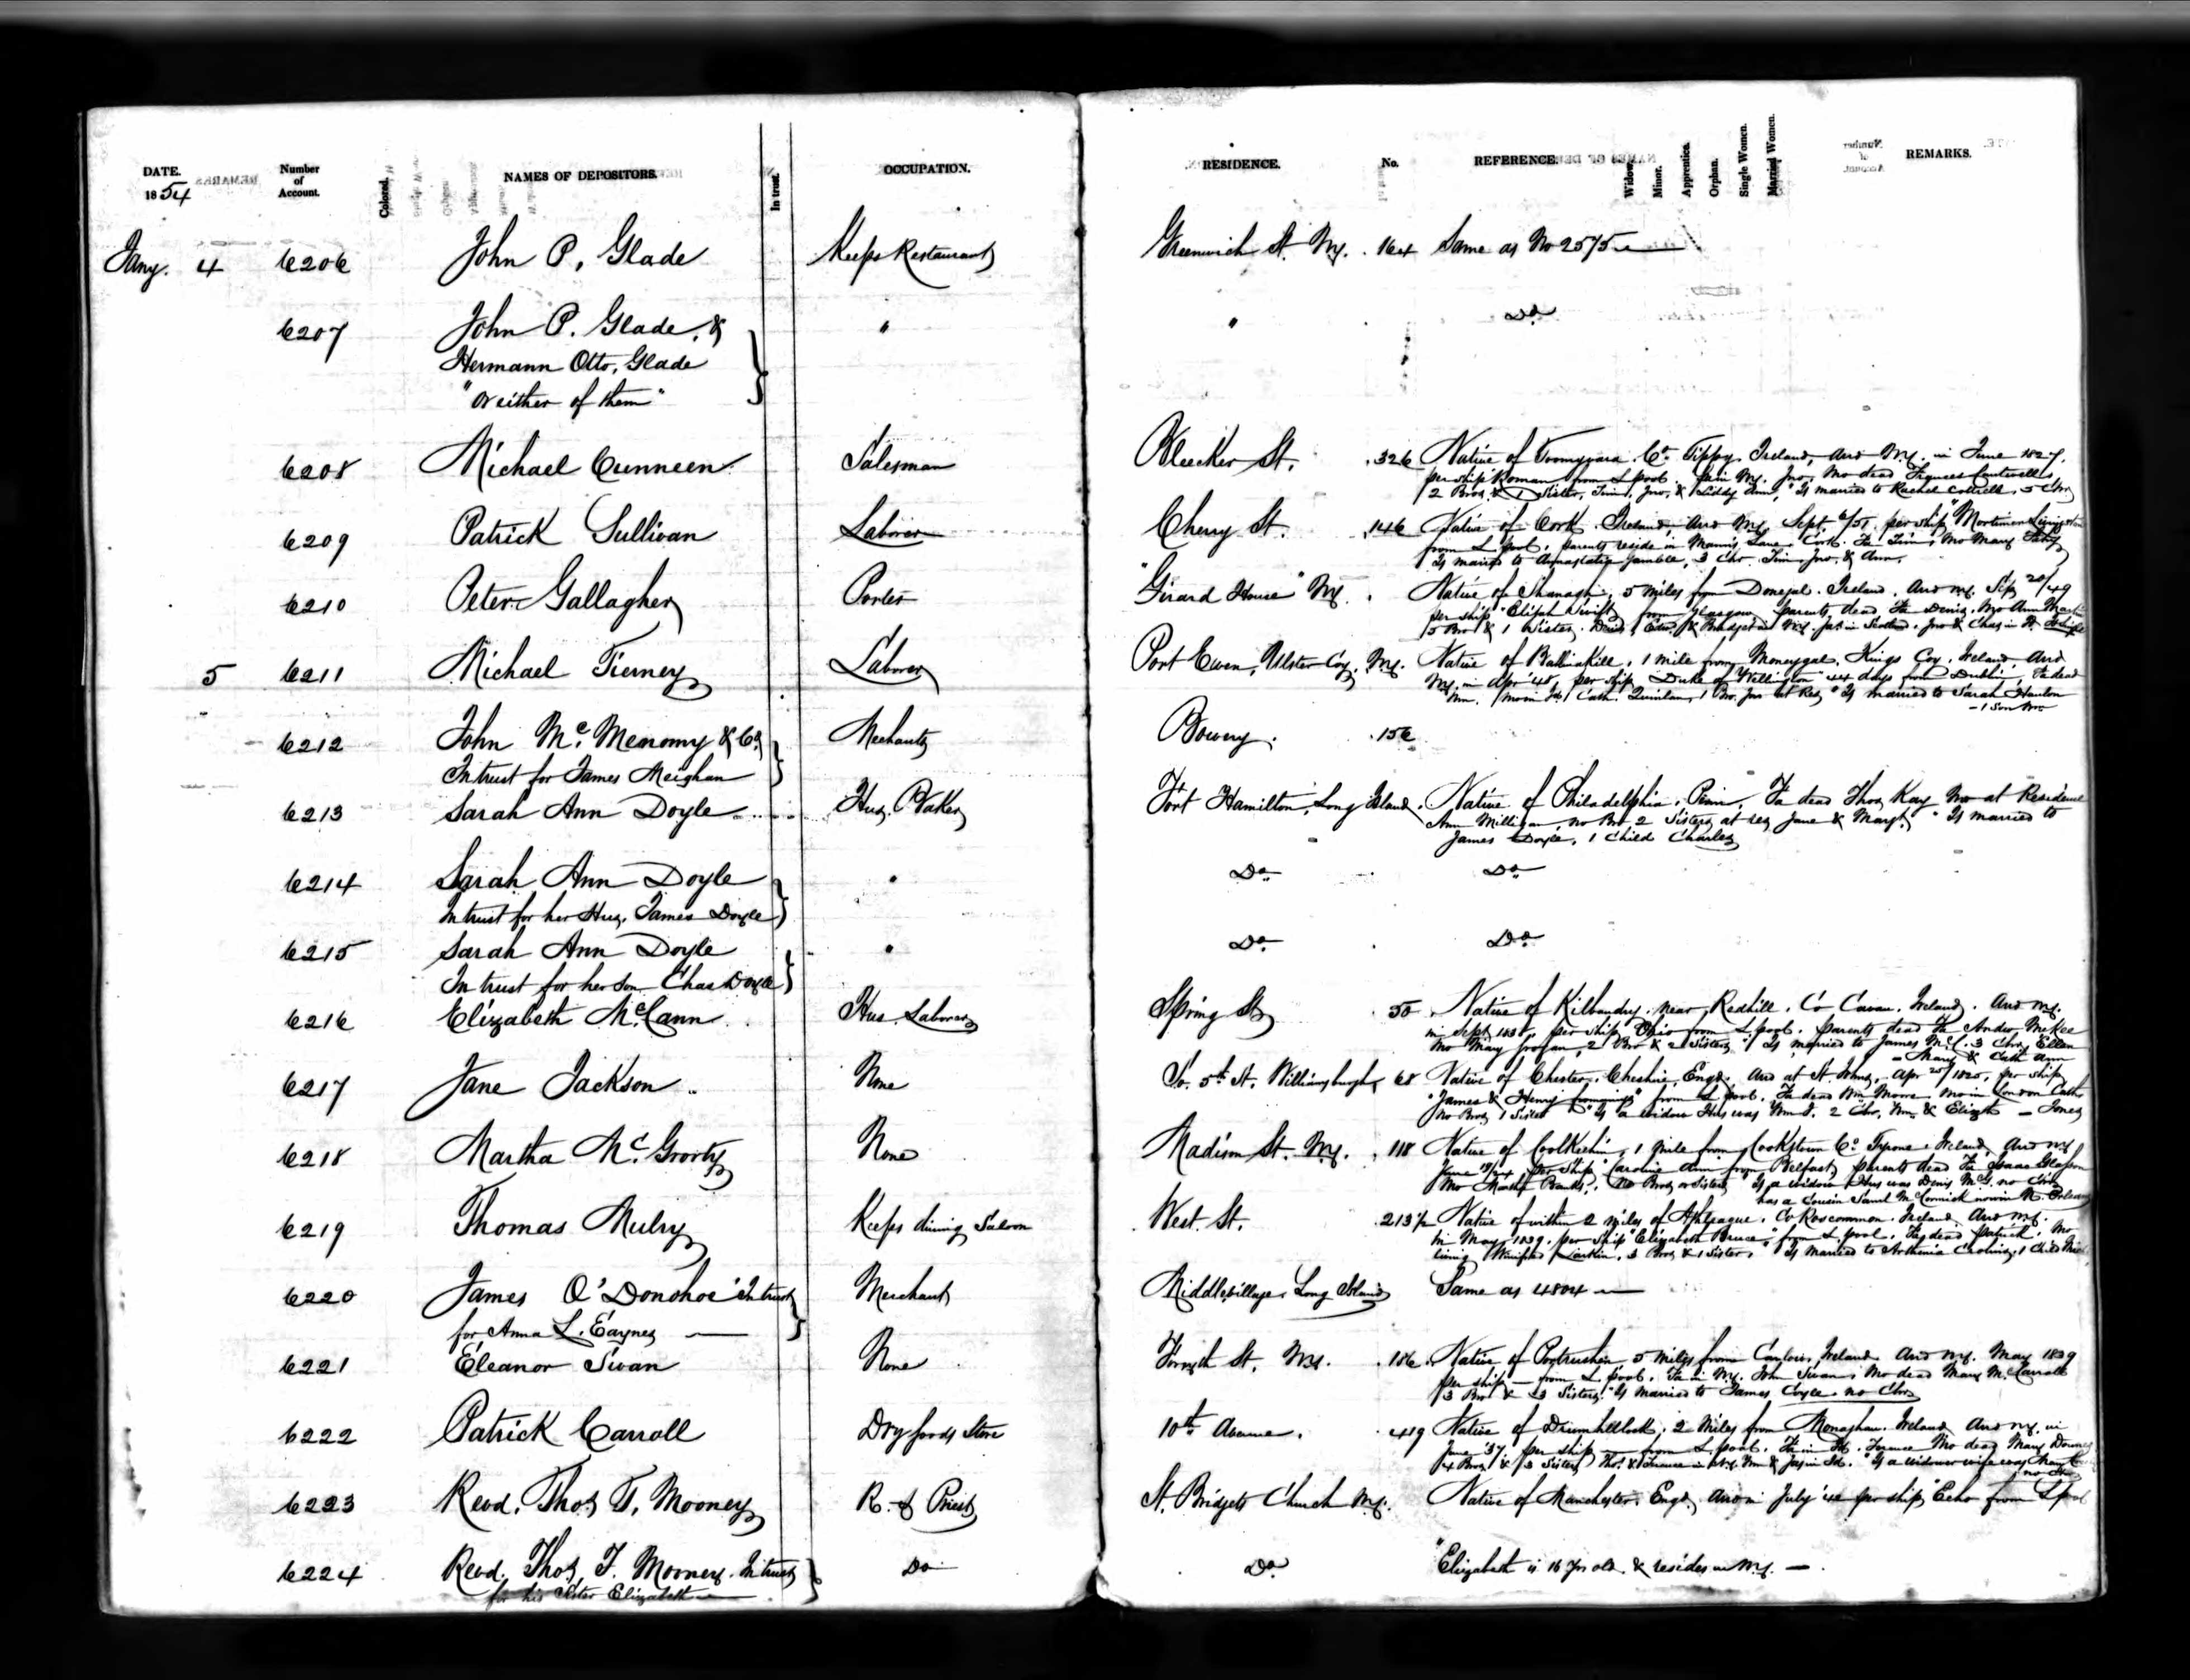 DATE. Number of Account. Colored. NAMES OF DEPOSITORS. In trust. OCCUPATION. RESIDENCE. No. REFERENCE. Widow. Minor. Apprentice. Orphan. Single Women. Married Women. REMARKS.
1854
Jany. 4 6206 John P. Glade Keeps Restaurant Greenwich St. N.Y. 164 Same as No 2575
6207 John P. Glade, & " " Do
Hermann Otto, Glade
"or either of them"
6208 Michael Cunneen Salesman Bleecker St. 326 Native of Toomyvara. Co. Tippy. Ireland, Arrd N.Y. in June 1827.
per ship Roman from L.pool. Fa in N.Y. Jno. Mo dead Frances Cantwell,
2 Bros. & 1 Sister, Tim, Jno, & Liddy Ann, "Is married to Rachel Cottrell 5 Chn
6209 Patrick Sullivan Laborer Cherry St. 146 Native of Cork. Ireland, Arrd N.Y. Sept. 6/51 per ship "Mortimer Livingston
from L.pool, parents reside in Lane Cork. Fa Tim, Mo Mary
Is married to Gamble, 3 Chn. Tim, Jno, & Ann.
6210 Peter Gallagher Porter "Girard House" N.Y. Native of Shanaghin, 5 miles from Donegal. Ireland. Arrd N.Y. Sep 20/49
per ship "Elijah Swift" from Glasgow, parents dead, Fa Denis. Mo Ann
5 Bro & 1 Sister. Denis, Edw. & Bridget in N.Y. Jas. in Scotland. Jno & Chas in
5 6211 Michael Tierney Laborer Port Ewen, Ulster Coy. N.Y. Native of Ballinakill, 1 mile from Moneygal. Kings Coy. Ireland, Arrd
N.Y. in Apr '48, per ship, "Duke of Wellington" 44 days from Dublin, Fa dead
Wm. Mo in Id. Cath. Quinlan, 1 Bro. Jno at Res. "Is married to Sarah Hanlon
- 1 Son Wm
6212 John McMenomy & Co. Mechants Bowery. 156
In trust for James Meighan
6213 Sarah Ann Doyle Hus. Baker Fort Hamilton, Long Island. Native of Philadelphia. Penn, Fa dead Thos Kay Mo at Residence
Ann Milligan, no Bro 2 Sisters at res Jane & Margt. "Is married to
James Doyle, 1 Child Charles
6214 Sarah Ann Doyle " Do Do
In trust for her Hus. James Doyle
6215 Sarah Ann Doyle " Do Do
In trust for her Son Chas Doyle
6216 Elizabeth McCann Hus. Laborer Spring St 50 Native of Kilbandry. near Redhill. Co Cavan. Ireland. Arrd N.Y.
in Sept 1838, per ship, Ohio from L.pool. parents dead Fa Andw. McKee
Mo Mary Grogan, 2 Bro & 2 Sisters "Is married to James McC. 3 Chn. Ellen
- Mary & Cath Ann
6217 Jane Jackson None So. 5th St. Williamsburgh 68 Native of Chester, Cheshire, Engd. Arrd at St. Johns, Apr 25/1820, per ship,
"James & Henry " from L.pool. Fa dead Wm Moore Mo in London Cath
No Bro 1 Sister "Is a widow Hus was Wm J. 2 Chn, Wm & Elizth - Jones
6218 Martha McGroorty None Madison St. N.Y. 118 Native of Coolkeehin, 1 mile from Cookstown Co. Tyrone. Ireland, Arrd N.Y
June per ship "Caroline Ann" from Belfast, parents dead Fa Isaac Glasson
Mo Martha Banks, No Bros or Sisters "Is a widow Hus was Denis McG. no Chn
has a Cousin Saml McCormick now in N. Orleans
6219 Thomas Mulry Keeps dining Saloon West. St. 213½ Native of within 2 miles of Athleague. Co Roscommon. Ireland. Arrd N.Y.
in May 1839. per Ship Elizabeth Bruce from L.pool. Fa dead Patrick. Mo
living Winifred Larkin, 3 Bros & 1 Sister "Is married to 1 Child
6220 James O'Donohoe In trust Merchant Middlevillage, Long Island Same as 4804
for Anna L. Eaynes
6221 Eleanor Swan None Forsyth St, N.Y. 186 Native of 5 miles from Carlow, Ireland Arrd N.Y. May 1839
per ship — from L.pool. Fa in N.Y. John Swan, Mo dead Mary McCarroll
3 Bro & 3 Sisters "Is married to James Coyle no Chn
6222 Patrick Carroll Dry goods Store 10th Avenue. 419 Native of 2 Miles from Monaghan. Ireland. Arrd N.Y. in
June '37, per ship — from L.pool. Fa in Id. Terence Mo dead Mary Downey
4 Bros & 3 Sisters Thos. & Terence in N.Y. Wm & Jas in Id. "Is a widower wife was Mary
no Chn
6223 Revd. Thos F. Mooney R. C Priest St. Bridgets Church N.Y. Native of Manchester. Engd. Arrd in July '42 per ship Echo from L.pool
6224 Revd. Thos, F. Mooney. In trust Do Do "Elizabeth is 16 yrs old. & resides in N.Y. —
for his Sister Elizabeth